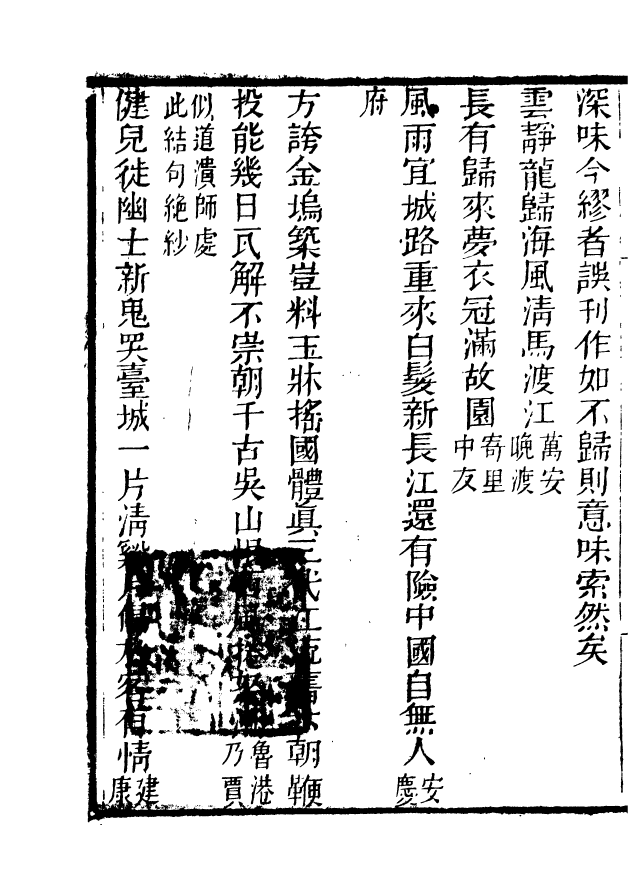 深味今繆者誤刊作如不歸則意味索然矣
雲靜龍歸海風清馬渡江萬安晚渡
長有歸來夢衣冠滿故園寄里中友
風雨宜城路重來白髮新長江還有險中國自無人安慶
府
方誇金塢築豈料玉牀搖國體眞三代江流舊六朝鞭
投能幾日瓦解不崇朝千古吳山恨風捲怒魯港乃賈
似道潰師處
此結句絶紗
健兒徒幽士新鬼哭臺城一片清谿月偏於客有情建康